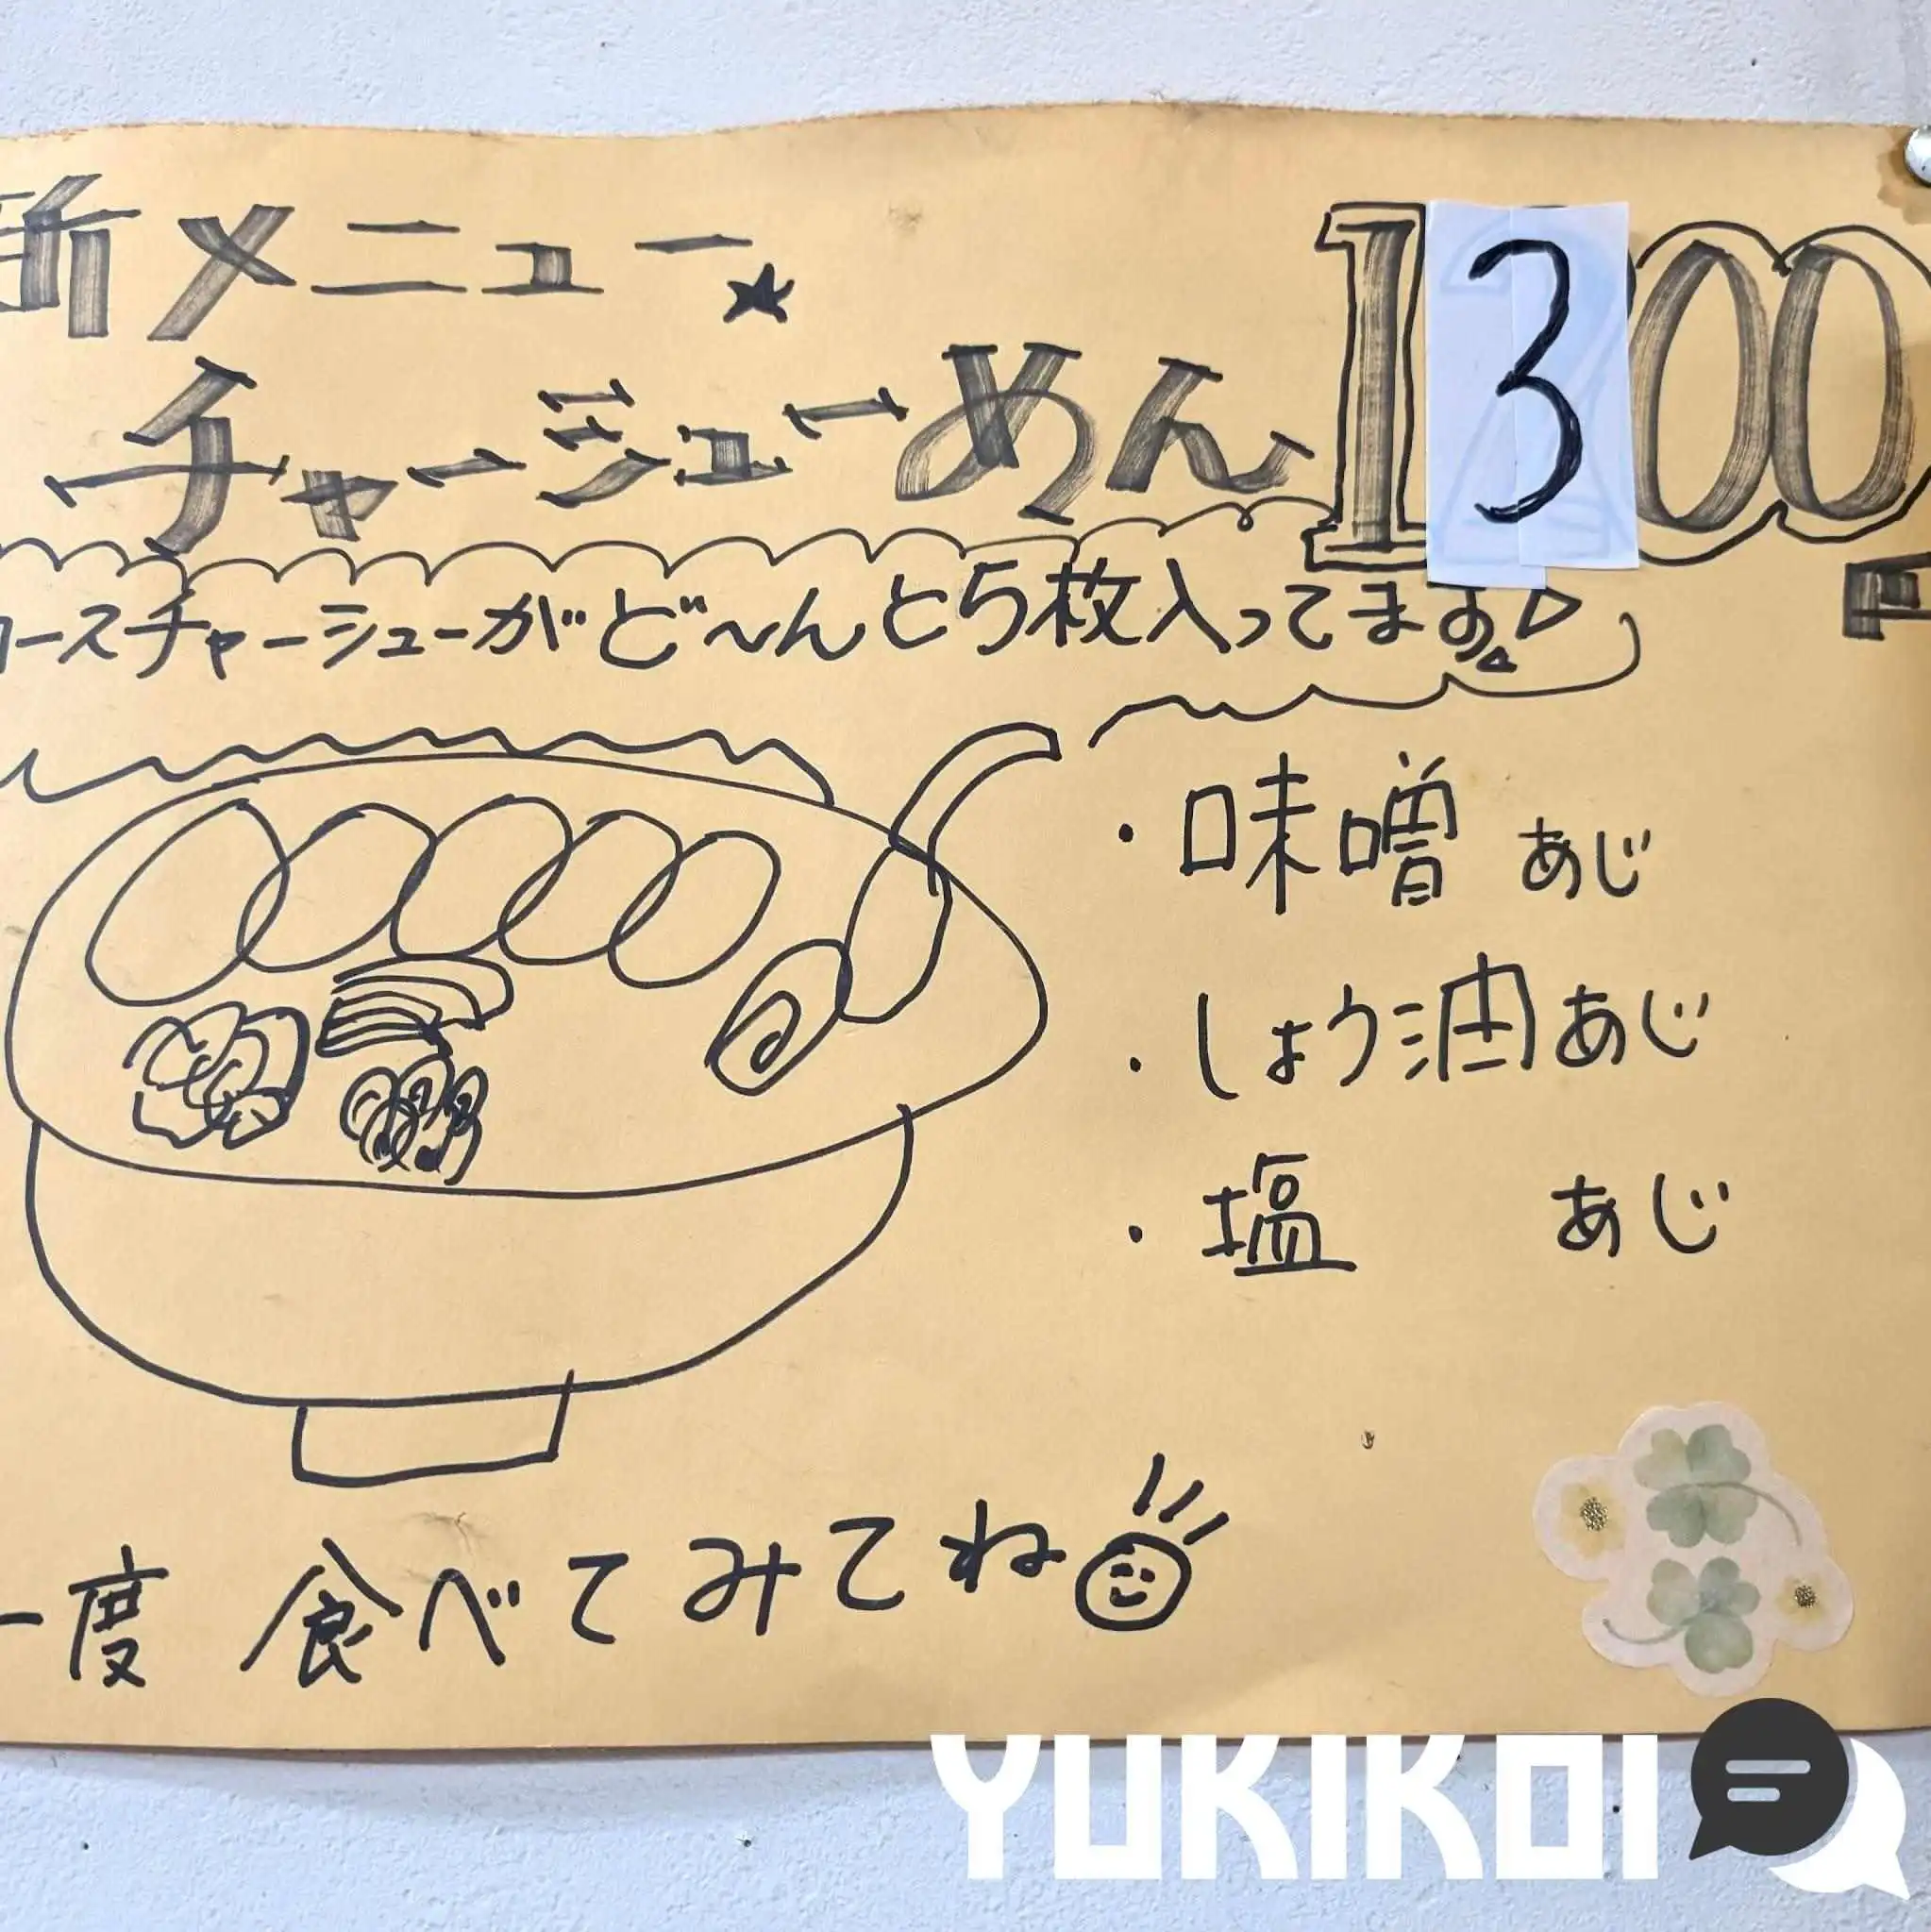 新メニュー★
チャーシューめん 1300
ロースチャーシューがど〜んと5枚入ってます
・味噌 あじ
・しょう油あじ
・塩 あじ
一度 食べてみてね
YUKIKOI